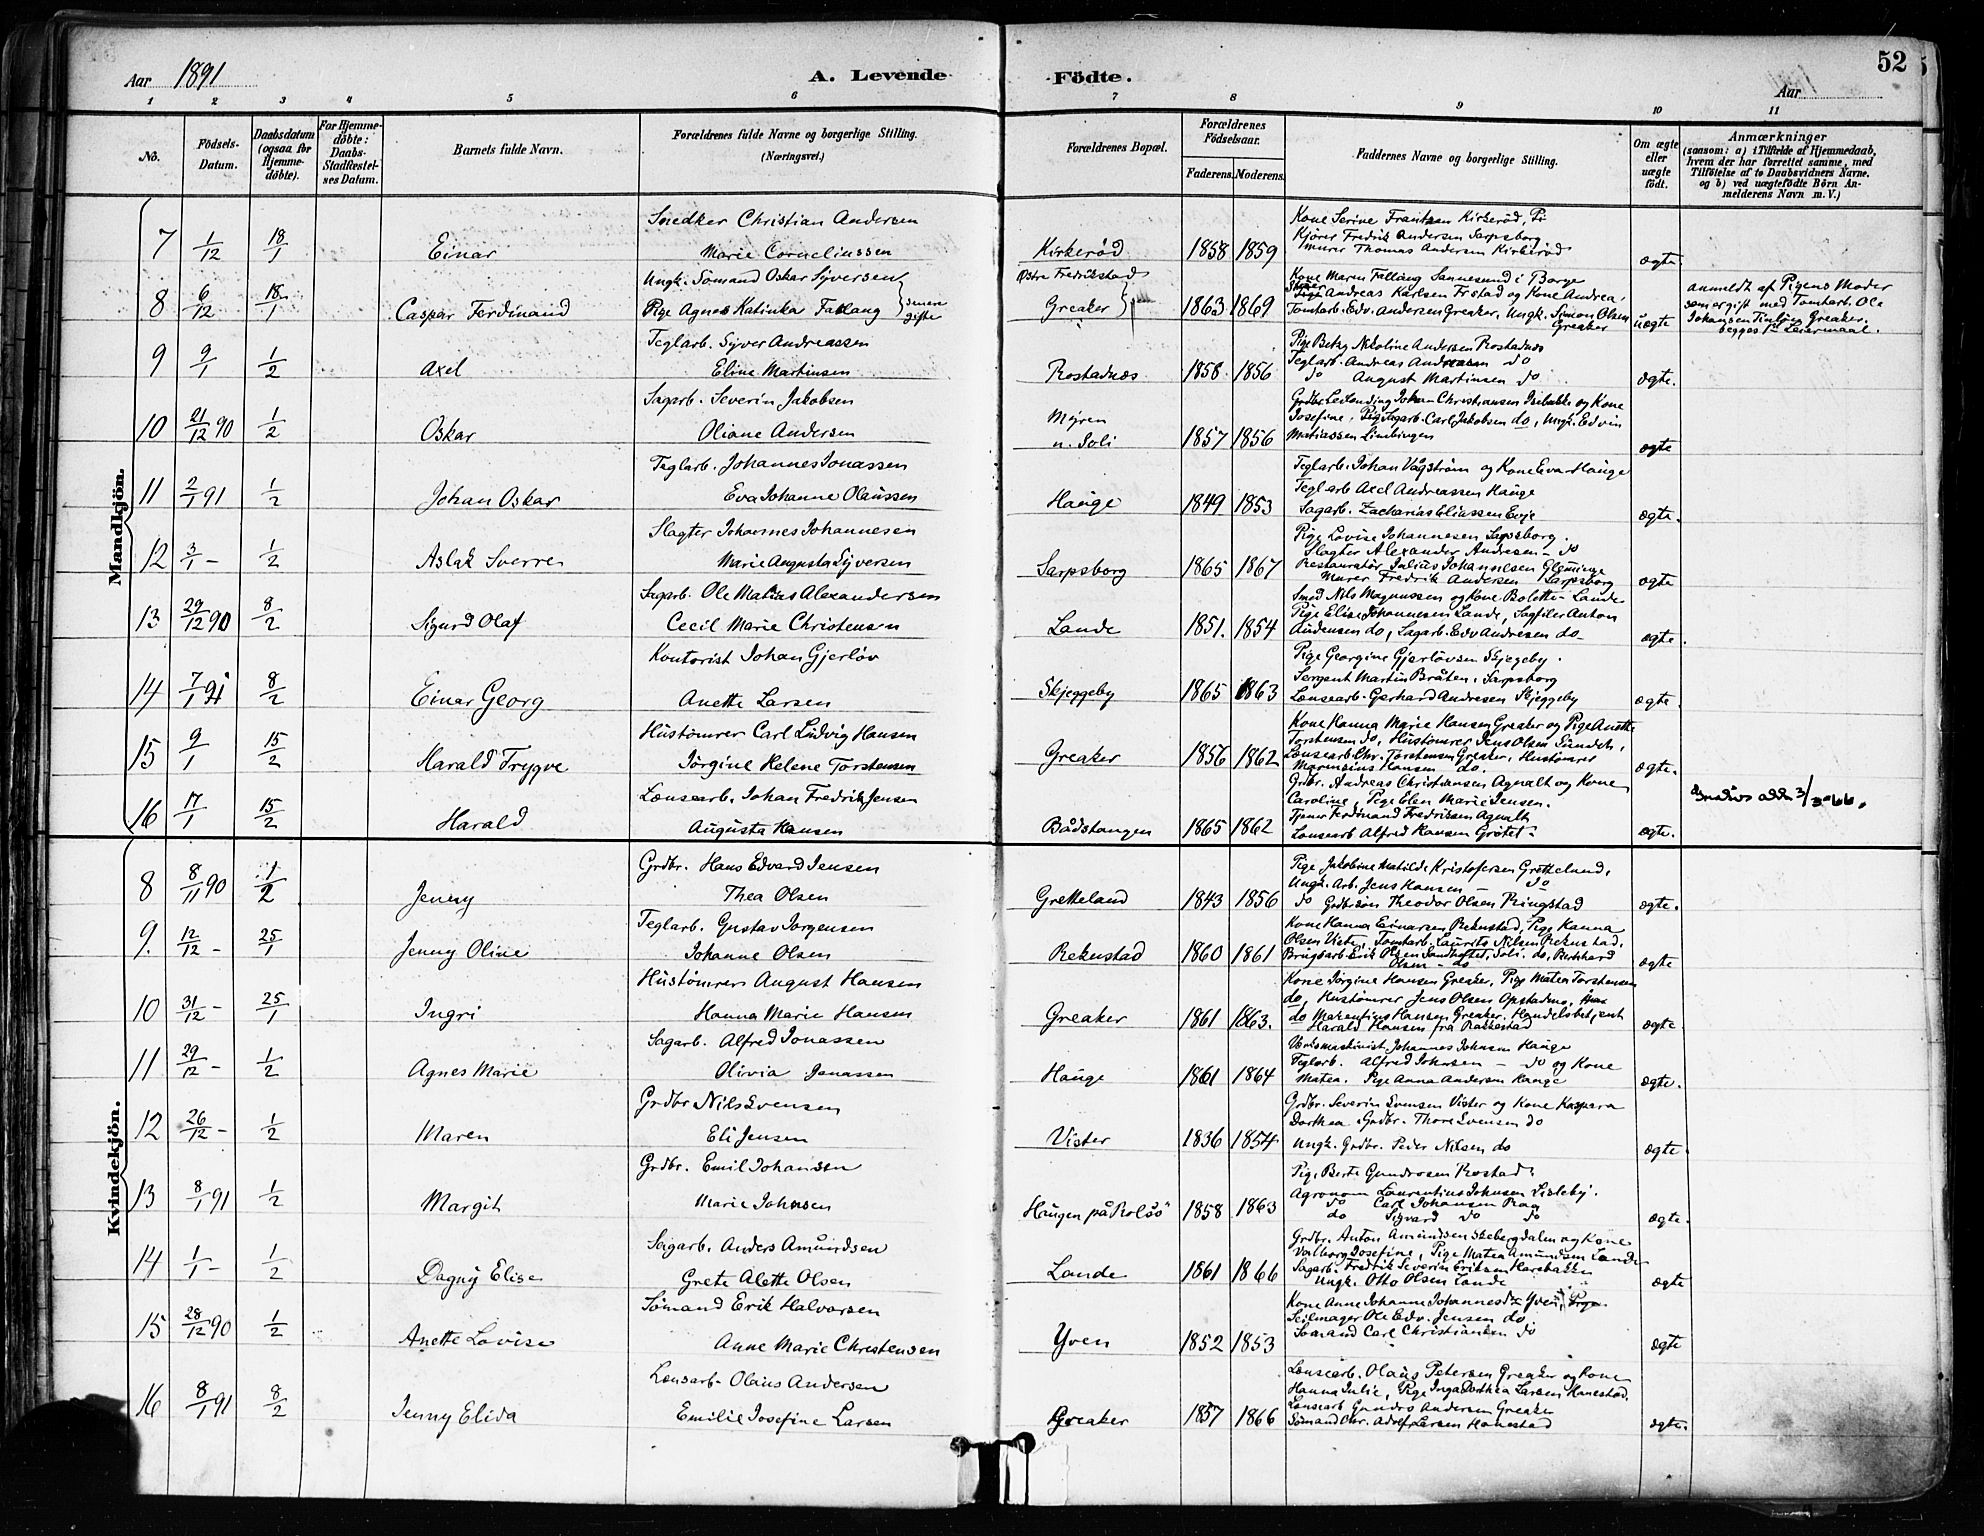 Aar 1891
A. Levende Födte.
Aar
52
1 2 3 4 5 6 7 8 9 10 11
No.
Födsels-Datum.
Daabsdatum (ogsaa for Hjemmedöbte).
For Hjemmedöbte: Daabs-Stadfæstelses Datum.
Barnets fulde Navn.
Forældrenes fulde Navne og borgerlige Stilling. (Næringsvei.)
Forældrenes Bopæl.
Forældrenes Födselsaar.
Faderens. Moderens.
Faddernes Navne og borgerlige Stilling.
Om ægte eller uægte födt.
Anmærkninger
(saasom: a) i Tilfælde af Hjemmedaab, hvem der har forrettet samme, med Tilföielse af to Daabsvidners Navne. og b) ved uægtefödte Börn Anmelderens Navn m. V.)
Mandkjön.
7 1/12 18/1 Einar
Snedker Christian Andersen
Marie Corneliussen
Kirkeröd 1858 1859
Kone Serine Frantzen Kirkeröd,
Kjörer Fredrik Andersen Sarpsborg
Murer Thomas Andersen Kirkeröd
ægte
8 6/12 18/1 Caspar Ferdinand
Ungk. Sömand Oskar Syversen
Pige Agnes Katinka Fallang } senere gifte
Östre Fredrikstad
Greaker 1863 1869
Kone Maren Fallang Sannesund i Borge
Andreas Karlsen Frstad og Kone Andrea,
Tomtarb. Edv. Andersen Greaker, Ungk. Simon Olsen
Greaker
uægte
anmeldt af Pigens Moder
som er gift med Tomtarb. Ole
Johansen Greaker.
begges 1ste Leiermaal.
9 9/1 1/2 Axel
Teglarb. Syver Andreassen
Eline Martinsen
Rostadnæs 1858 1856
Pige Betzy Nikoline Andersen Rostadnæs
Teglarb. Andreas Andreasen do
do August Martinsen do
ægte.
10 21/12 90 1/2 Oskar
Sagarb. Severin Jakobsen
Oliane Andersen
Myren
u. Soli 1857 1856
Johan Christiansen Isebakke og Kone
Josefine, Pig Sagarb. Carl Jakobsen do, Ungk. Edvin
Matiassen Limbingen
ægte
11 2/1 91 1/2 Johan Oskar
Teglarb. Johannes Jonassen
Eva Johanne Olaussen
Hauge 1849 1853
Teglarb. Johan Vågström og Kone Eva Hauge
Teglarb Axel Andreassen Hauge
Sagarb. Zacharias Eliassen Evje
ægte.
12 3/1 - 1/2 Aslak Sverre
Slagter Johannes Johannesen
Marie Augusta Syversen
Sarpsborg 1865 1867
Pige Lovise Johannesen Sarpsborg.
Slagter Alexander Andresen - do
Restauratör Julius Johannesen Glemminge
Murer Fredrik Andersen Sarpsborg
ægte
13 29/12 90 8/2 Sigurd Olaf
Sagarb. Ole Matias Alexandersen
Cecil Marie Christensen
Lande 1851. 1854
Smed Nils Magnussen og Kone Bolette - Lande
Pige Elise Johannesen Lande, Sagfiler Anton
Andersen do, Sagarb. Edv Andresen do -
ægte.
14 7/1 91 8/2 Einar Georg
Kontorist Johan Gjerlöv
Anette Larsen
Skjeggeby 1865 1863
Pige Georgine Gjerlövsen Skjegeby.
Sergent Martin Bråten, Sarpsborg
Lensearb. Gerhard Andresen Skjeggeby
ægte.
15 9/1 15/2 Harald Trygve
Hustömrer Carl Ludvig Hansen
Jörgine Helene Torstensen
Greaker 1856 1862
Kone Hanna Marie Hansen Greaker og Pige Anette
Torstensen do, Hustömrer Jens Olsen Sundet,
Lensearb. Chr. Torstensen Greaker, Hustömrer
Marensius Hansen do.
ægte.
16 17/1 15/2 Harald
Lensearb. Johan Fredrik Jensen
Augusta Hansen
Bådstangen 1865 1862
Grdbr. Andreas Christiansen Agnalt og Kone
Caroline, Pige Elen Marie Jensen.
Tjener Ferdinand Fredriksen Agnalt
Lensearb Alfred Hansen Grötet.
ægte.
3/3-66.
Kvindekjön.
8 8/11 90 1/2 Jenny
Grdbr. Hans Edvard Jensen
Thea Olsen
Gretteland 1843 1856
Pige Jakobine Matilde Kristofersen Grettelund,
Ungk. Arb. Jens Hansen - do
do Grdbrsön Theodor Olsen Ringstad
ægte.
9. 12/12 - 25/1 Jenny Oline
Teglarb. Gustav Jörgensen
Johanne Olsen
Rekustad 1860 1861
Kone Hanna Einarsen Rekustad, Pige Hanna
Olsen Viste, Tomtarb. Laurits Nilsen Rekustad,
Brugsarb. Erik Olsen Sandtoftet, Soli. do, Bernhard
Olsen - do
ægte
10 31/12 - 25/1 Ingri
Hustömrer August Hansen
Hanna Marie Hansen
Greaker 1861 1863.
Kone Jörgine Hansen Greaker, Pige Matea Torstensen
do, Hustömrer Jens Olsen Opstadnæs,
do Marentius Hansen Greaker. Handelsbetjent
Harald Hansen fra Rakkestad
ægte.
11 29/12 - 1/2 Agnes Marie
Sagarb. Alfred Jonassen
Olivia Jonassen
Hauge 1861 1864
Johannes Johnsen Hauge
Teglarb. Alfred Johnsen - do og Kone
Matea. Pige Anna Andersen Hauge
ægte.
12 26/12 - 1/2 Maren
Grdbr Nils Svensen
Eli Jensen
Vister 1836 1854
Grdbr. Severin Svensen Vister og Kone Kaspara
Dorthea, Grdbr. Thore Svensen do
Ungk. Grdbr. Peder Nilsen do
ægte.
13 8/1 91 1/2 Margit
Grdbr. Emil Johansen
Marie Johnsen
Haugen på Rolfsö 1858 1863
Pige Berte Gundrosen Rostad.
Agronom Laurentius Johnsen Lisleby.
do Carl Johansen Raa
do Sigvard do do
ægte.
14 1/1 - 1/2 Dagny Elise
Sagarb. Anders Amundsen
Grete Alette Olsen
Lande 1861 1866
Grdbr. Anton Amundsen Skebergdalen og Kone
Valborg Josefine, Pige Matea Amundsen Lande
Sagarb. Fredrik Severin Eriksen Harebakken
Ungk. Otto Olsen Lande
ægte
15 28/12 90 1/2 Anette Lovise
Sömand Erik Halvorsen
Anne Marie Christensen
Yven 1852 1853
Kone Anne Johanne Johannesdtr Yven, Pige
Seilmager Ole Edv. Jensen do
Sömand Carl Christiansen do
ægte
16 8/1 91 8/2 Jenny Elida
Lensarb. Olaus Andersen
Emilie Josefine Larsen
Greaker 1857 1866
Lensearb. Olaus Petersen Greaker og Kone
Hanna Julie, Pige Inga Dorthea Larsen Hanestad.
Lensearb Gundro Andersen Greaker
Sömand Chr. Adolf Larsen Hanestad
ægte.